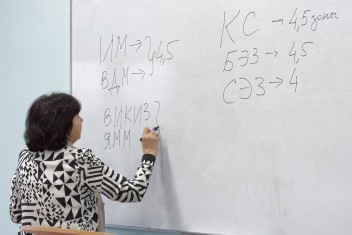 ИМ→
ВДМ→ } 4,5
ВИКИЗ }
ЯМИ
КС → 4,5 зоны
БЭЗ → 4,5
СЭЗ → 4